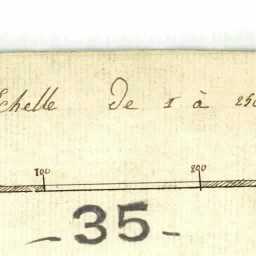 Echelle de 1 à 250
100 200
- 35 -